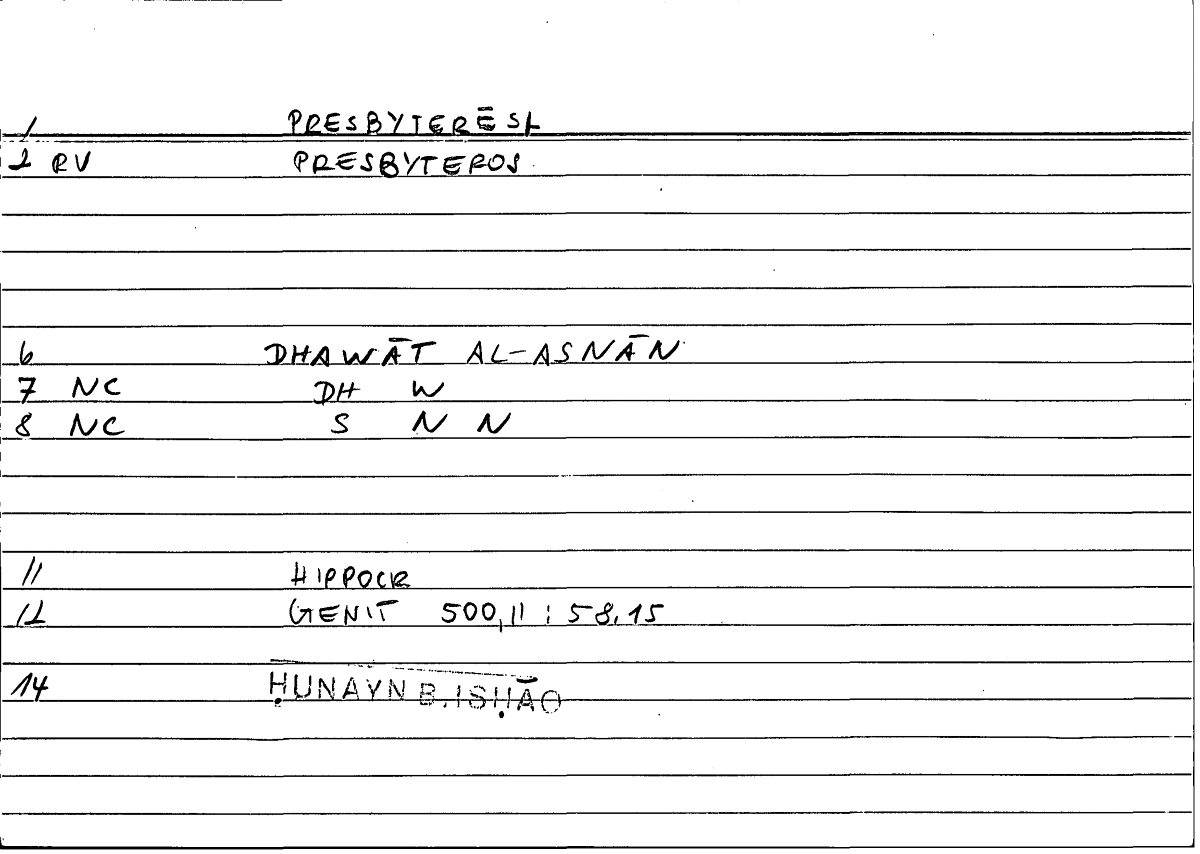 1 PRESBYTERĒSI
2 RV PRESBYTEROS
6 DHAWĀT AL-ASNĀN
7 NC DH W
8 NC S N N
11 HIPPOCR
12 GENIT 500,11 : 58,15
14 ḤUNAYN B. ISḤĀQ